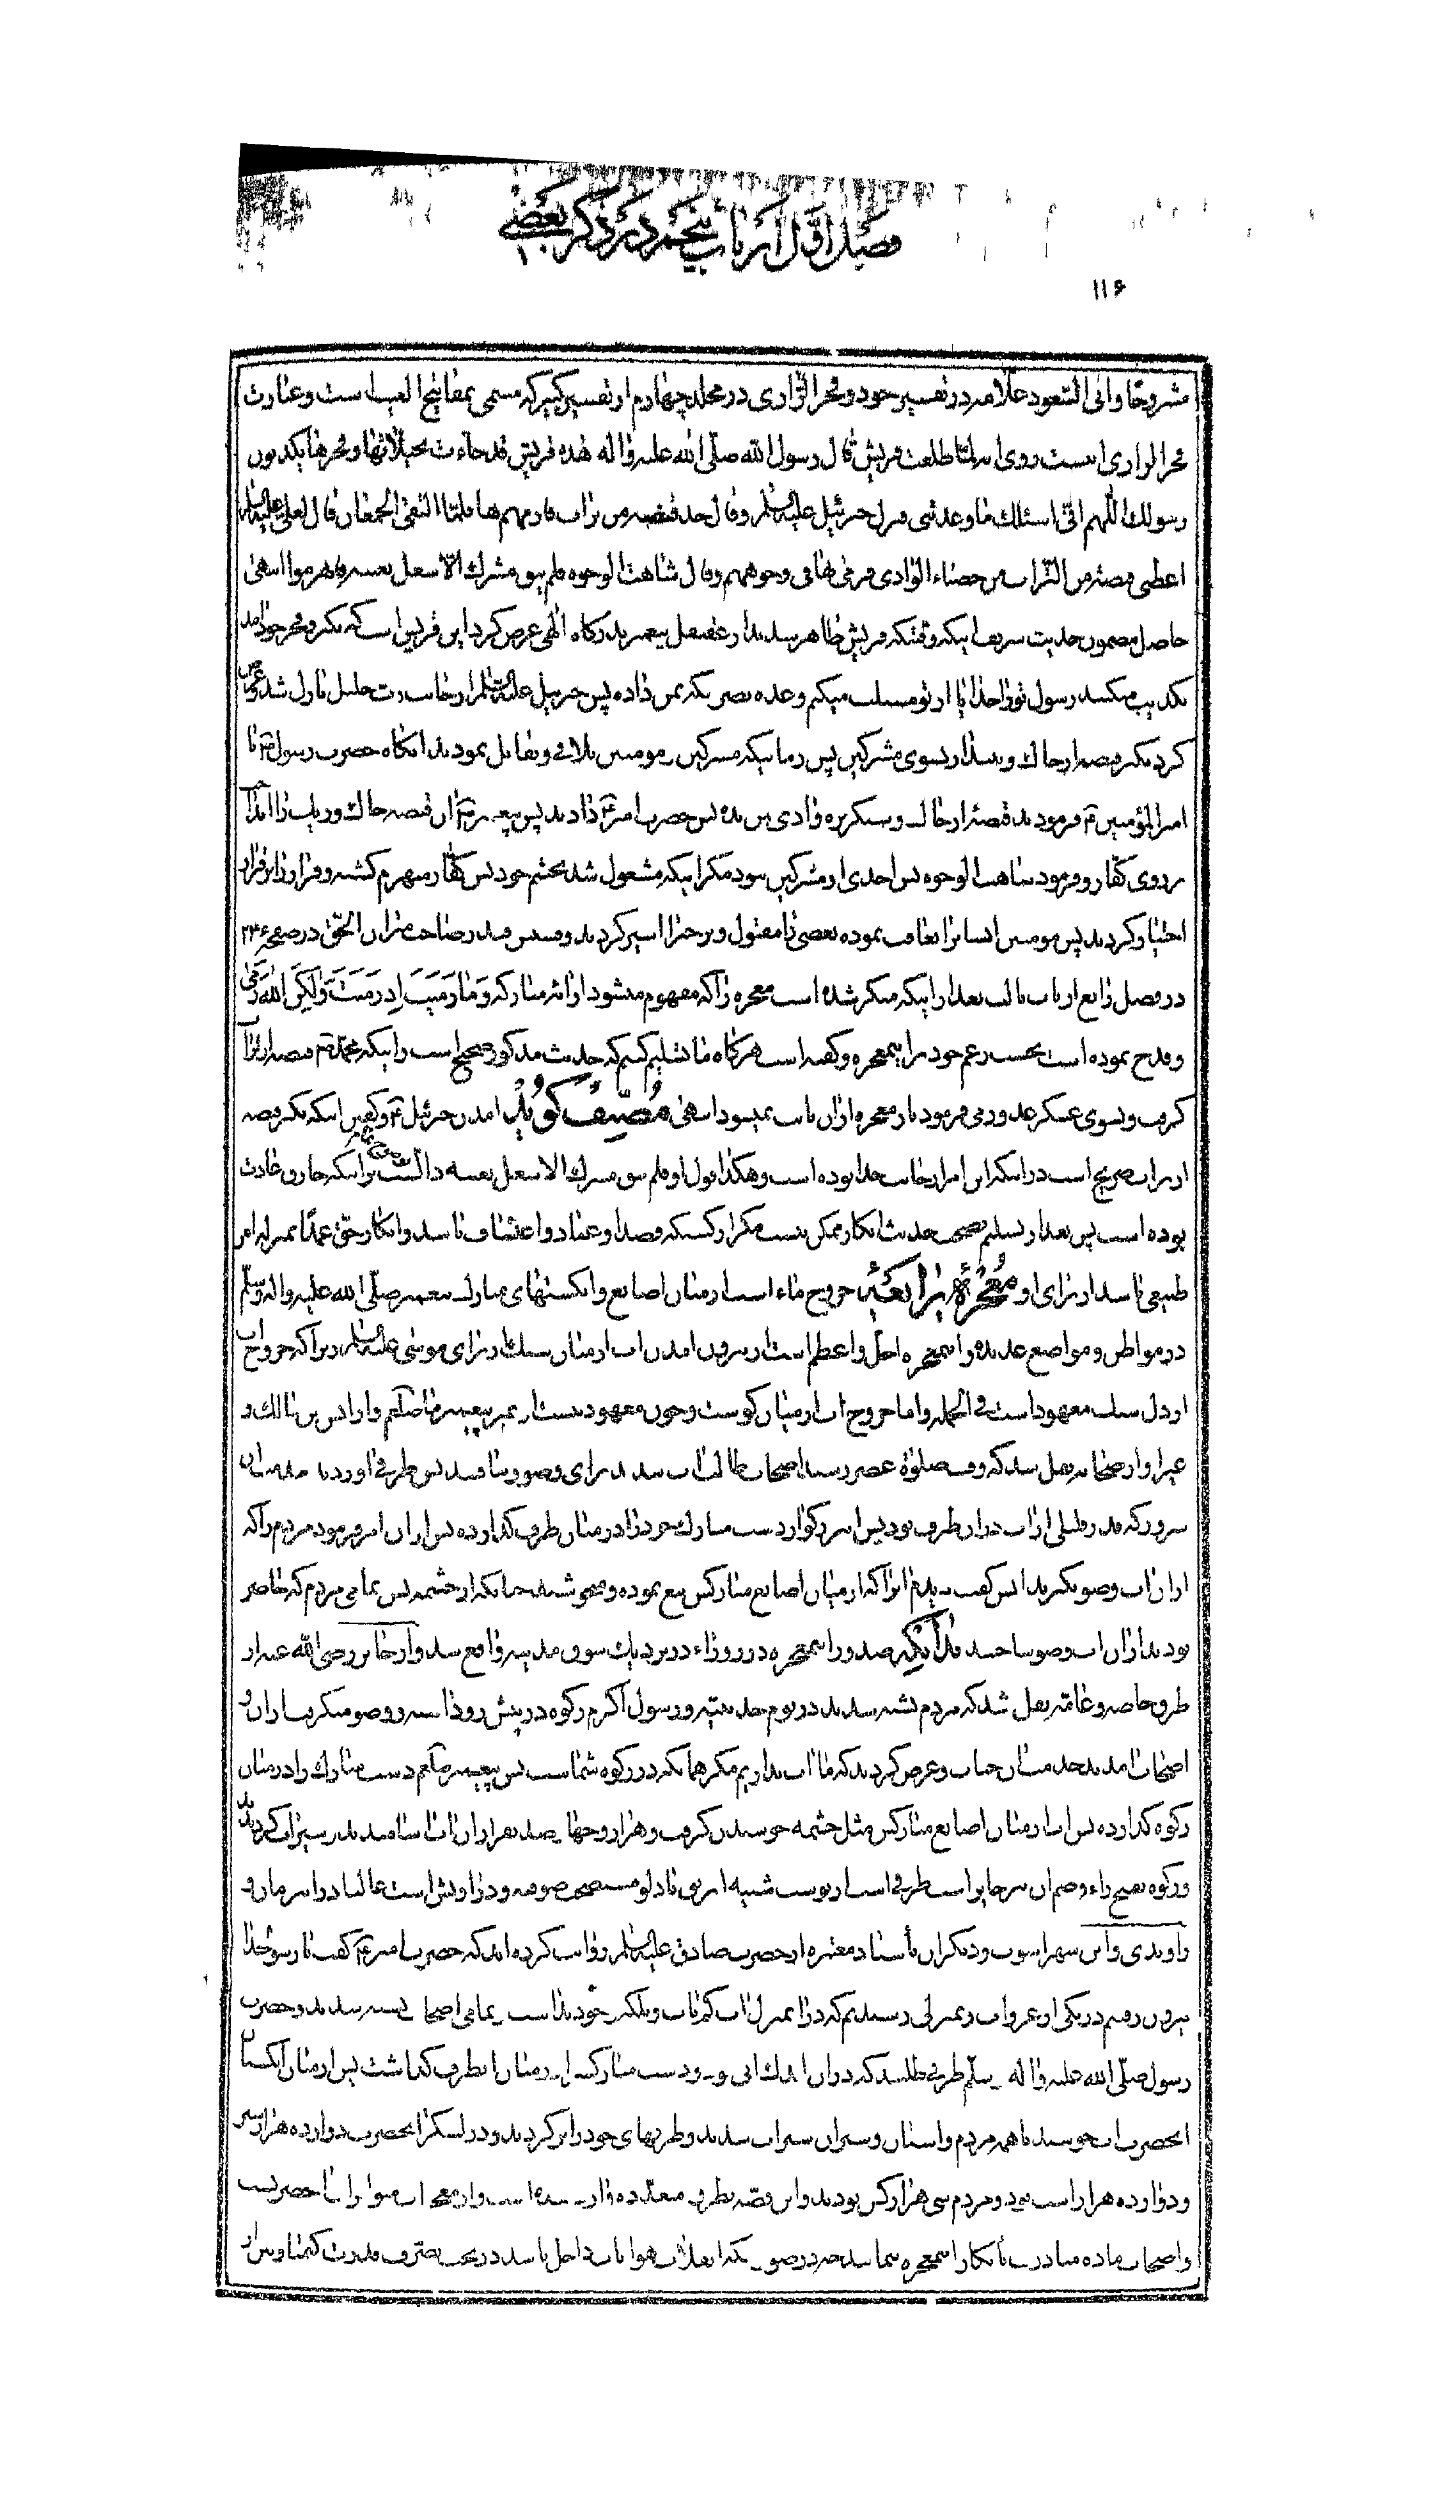 فصل اول از باب پنجم در ذکر بعضی
۱۱۶
مشروحا وابی السعود علامه در تفسیر خود و فخر الرازی در مجلد چهارم از تفسیر کبیر که مسمی بمفاتیح الغیب است و عبارت
فخر الرازی اینست روی انه لما طلعت قریش قال رسول الله صلی الله علیه واله هذه قریش قد جاءت بخیلائها وفخرها یکذبون
رسولك اللهم انی اسئلك ما وعدتنی فنزل جبرئیل علیه السلام وقال خذ قبضة من تراب فارمهم بها فلما التقی الجمعان قال لعلی علیه السلام
اعطنی قبضة من التراب من حصباء الوادی فرمی بها فی وجوههم وقال شاهت الوجوه فلم یبق مشرك الا شغل بعینه فانهزموا انتهی
حاصل مضمون حدیث شریف اینکه وقتیکه قریش ظاهر شدند از عقنقل پیغمبر بدرگاه الهی عرض کرد این قریش است که بکبر و فخر خود آمده
تکذیب میکنند رسول تو را خدایا از تو مسئلت میکنم وعده نصریکه بمن داده پس جبرئیل علیه السلام از جانب رب جلیل نازل شد عرض
کرد بگیر قبضه از خاك و بینداز بسوی مشرکین پس زمانیکه مشرکین و مومنین تلاقی و تقابل نمودند انگاه حضرت رسول ص با
امیر المؤمنین ع فرمودند قبضه از خاك و سنگریزه وادی بمن بده پس حضرت امیر ع دادند پس پیغمبر ص ان قبضه خاك و ریك را انداخت
بر روی کفار و فرمود شاهت الوجوه پس احدی از مشرکین نبود مگر اینکه مشغول شد بچشم خود پس کفار منهزم گشته و فرار را بر قرار
اختیار کردند پس مومنین ایشانرا تعاقب نموده بعضی را مقتول و برخی را اسیر کردند و قسیس فندر صاحب میزان الحق در صفحه ۲۳۶
در فصل رابع از باب ثالث بعد از اینکه منکر شده است معجزه را که مفهوم میشود از ایه مبارکه وَمَا رَمَيْتَ اِذْ رَمَيْتَ وَلٰكِنَّ اللهَ رَمٰى
و قدح نموده است بحسب زعم خود بر اینمعجزه و گفته است هرگاه ما تسلیم کنیم که حدیث مذکور صحیح است و اینکه محمد ص قبضه از تراب
گرفت و بسوی عسکر عدو رمی فرمود باز معجزه از ان ثابت نمیشود انتهی مُصَنِّفْ گُویَدْ امدن جبرئیل ع و گفتن اینکه بگیر قبضه
از تراب صریح است در اینکه این امر از جانب خدا بوده است و هکذا قول او فلم یبق مشرك الا شغل بعینه دالست بر اینکه خارق عادت
بوده است پس بعد از تسلیم صحت حدیث انکار ممکن نیست مگر از کسیکه قصد او عناد و اعتساف باشد و انکار حق عمدا بمنزله امر
طبیعی باشد از برای او مُعْجِزَۀ رَابِعَه خروج ماء است از میان اصابع و انگشتهای مبارك پیغمبر صلی الله علیه واله وسلم
در مواطن و مواضع عدیده و اینمعجزه اجل و اعظم است از بیرون امدن اب از میان سنك از برای موسی علیه السلام زیرا که خروج اب
از دل سنك معهود است فی الجمله و اما خروج اب از میان گوشت و خون معهود نیست از غیر پیغمبر ما صلعم و از انس بن مالك و
غیر او از صحابه نقل شد که وقت صلوة عصر رسید اصحاب طالب اب شدند برای وضو و نیافتند پس ظرفی اوردند خدمت ان
سرور که قدر قلیلی از اب در ان ظرف بود پس انسرور بزرگوار دست مبارك خود را در میان ظرف گذارده پس از ان امر فرمود مردم را که
از ان اب وضو بگیرند انس گفت دیدم ابرا که از میان اصابع مبارکش نبع نموده و میجوشید چنانکه از چشمه پس تمامی مردم که حاضر
بودند از ان اب وضو ساختند بدانکه صدور اینمعجزه در زوراء در نزدیك سوق مدینه واقع شد و از جابر رضی الله عنه از
طرق خاصه و عامه نقل شد که مردم تشنه شدند در یوم حدیبیه و رسول اکرم رکوه در پیش رو داشته و وضو میگرفت یاران و
اصحاب امدند خدمت ان جناب و عرض کردند که ما اب نداریم مگر همانکه در رکوه شماست پس پیغمبر صلعم دست مبارك را در میان
رکوه گذارده پس اب از میان اصابع مبارکش مثل چشمه جوشیدن گرفت و هزار و چهار صد نفر از ان اب اشامیدند و سیراب گردیدند
و رکوه بفتح راء و ضم ان نیز جایز است ظرفی است از پوست شبیه
راوندی و ابن شهراشوب و دیگران باسناد معتبره از حضرت صادق علیه السلام روایت کرده اند که حضرت امیر ع گفت با رسولخدا
بیرون رفتیم در یکی از غزوات و بمنزلی رسیدیم که در ان منزل اب کمیاب و بلکه خود نداشت تمامی اصحاب تشنه شدند و حضرت
رسول صلی الله علیه واله وسلم ظرفی طلبید که در ان اندك ابی بود و دست مبارکش در میان انظرف گذاشت پس از میان انگشتان
انحضرت اب جوشید تا همه مردم و اسبان و شتران سیراب شدند و ظرفهای خود را پر کردند و در لشکر انحضرت دوازده هزار شتر
و دوازده هزار اسب بود و مردم سی هزار کس بودند و این قصه بطرق متعدده وارد شده است و از معجزات متواتره انحضرتست